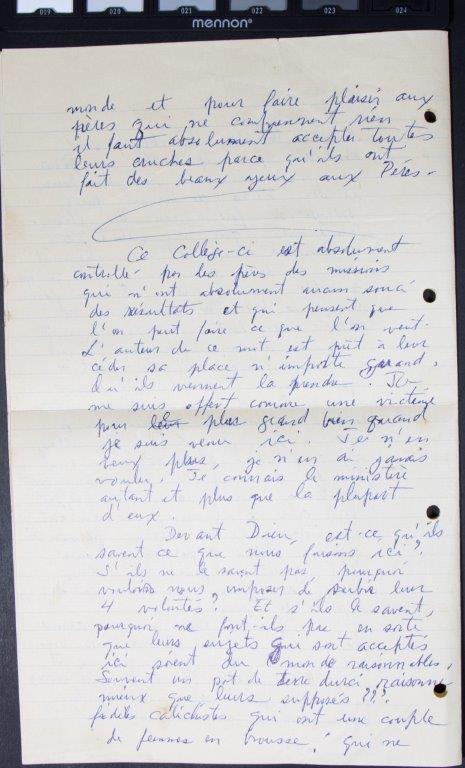 019 020 021 022 023 024
mennon
monde et pour faire plaisir aux
pères qui ne comprennent rien
il faut absolument accepter toutes
leurs cruches parce qu'ils ont
fait des beaux yeux aux Pères.
Ce Collège-ci est absolument
contrôlé par les pères des missions
qui n'ont absolument aucun souci
des résultats et qui pensent que
l'on peut faire ce que l'on veut.
L'auteur de ce mot est prêt à leur
céder sa place n'importe quand,
qu'ils viennent la prendre. Je
me suis offert comme une victime
pour le plus grand bien quand
je suis venu ici. Je n'en
veux plus, je n'en ai jamais
voulu. Je connais le ministère
autant et plus que la plupart
d'eux.
Devant Dieu, est-ce qu'ils
savent ce que nous faisons ici?
S'ils ne le savent pas pourquoi
nous imposer de subir leur
4 volontés? Et s'ils le savent,
pourquoi ne font-ils pas en sorte
que leurs sujets qui sont acceptés
ici soient du monde raisonnables.
Souvent un pot de terre durci raisonne
mieux que leurs supposés???
fidèles catéchistes qui ont une couple
de femmes en brousse! qui ne